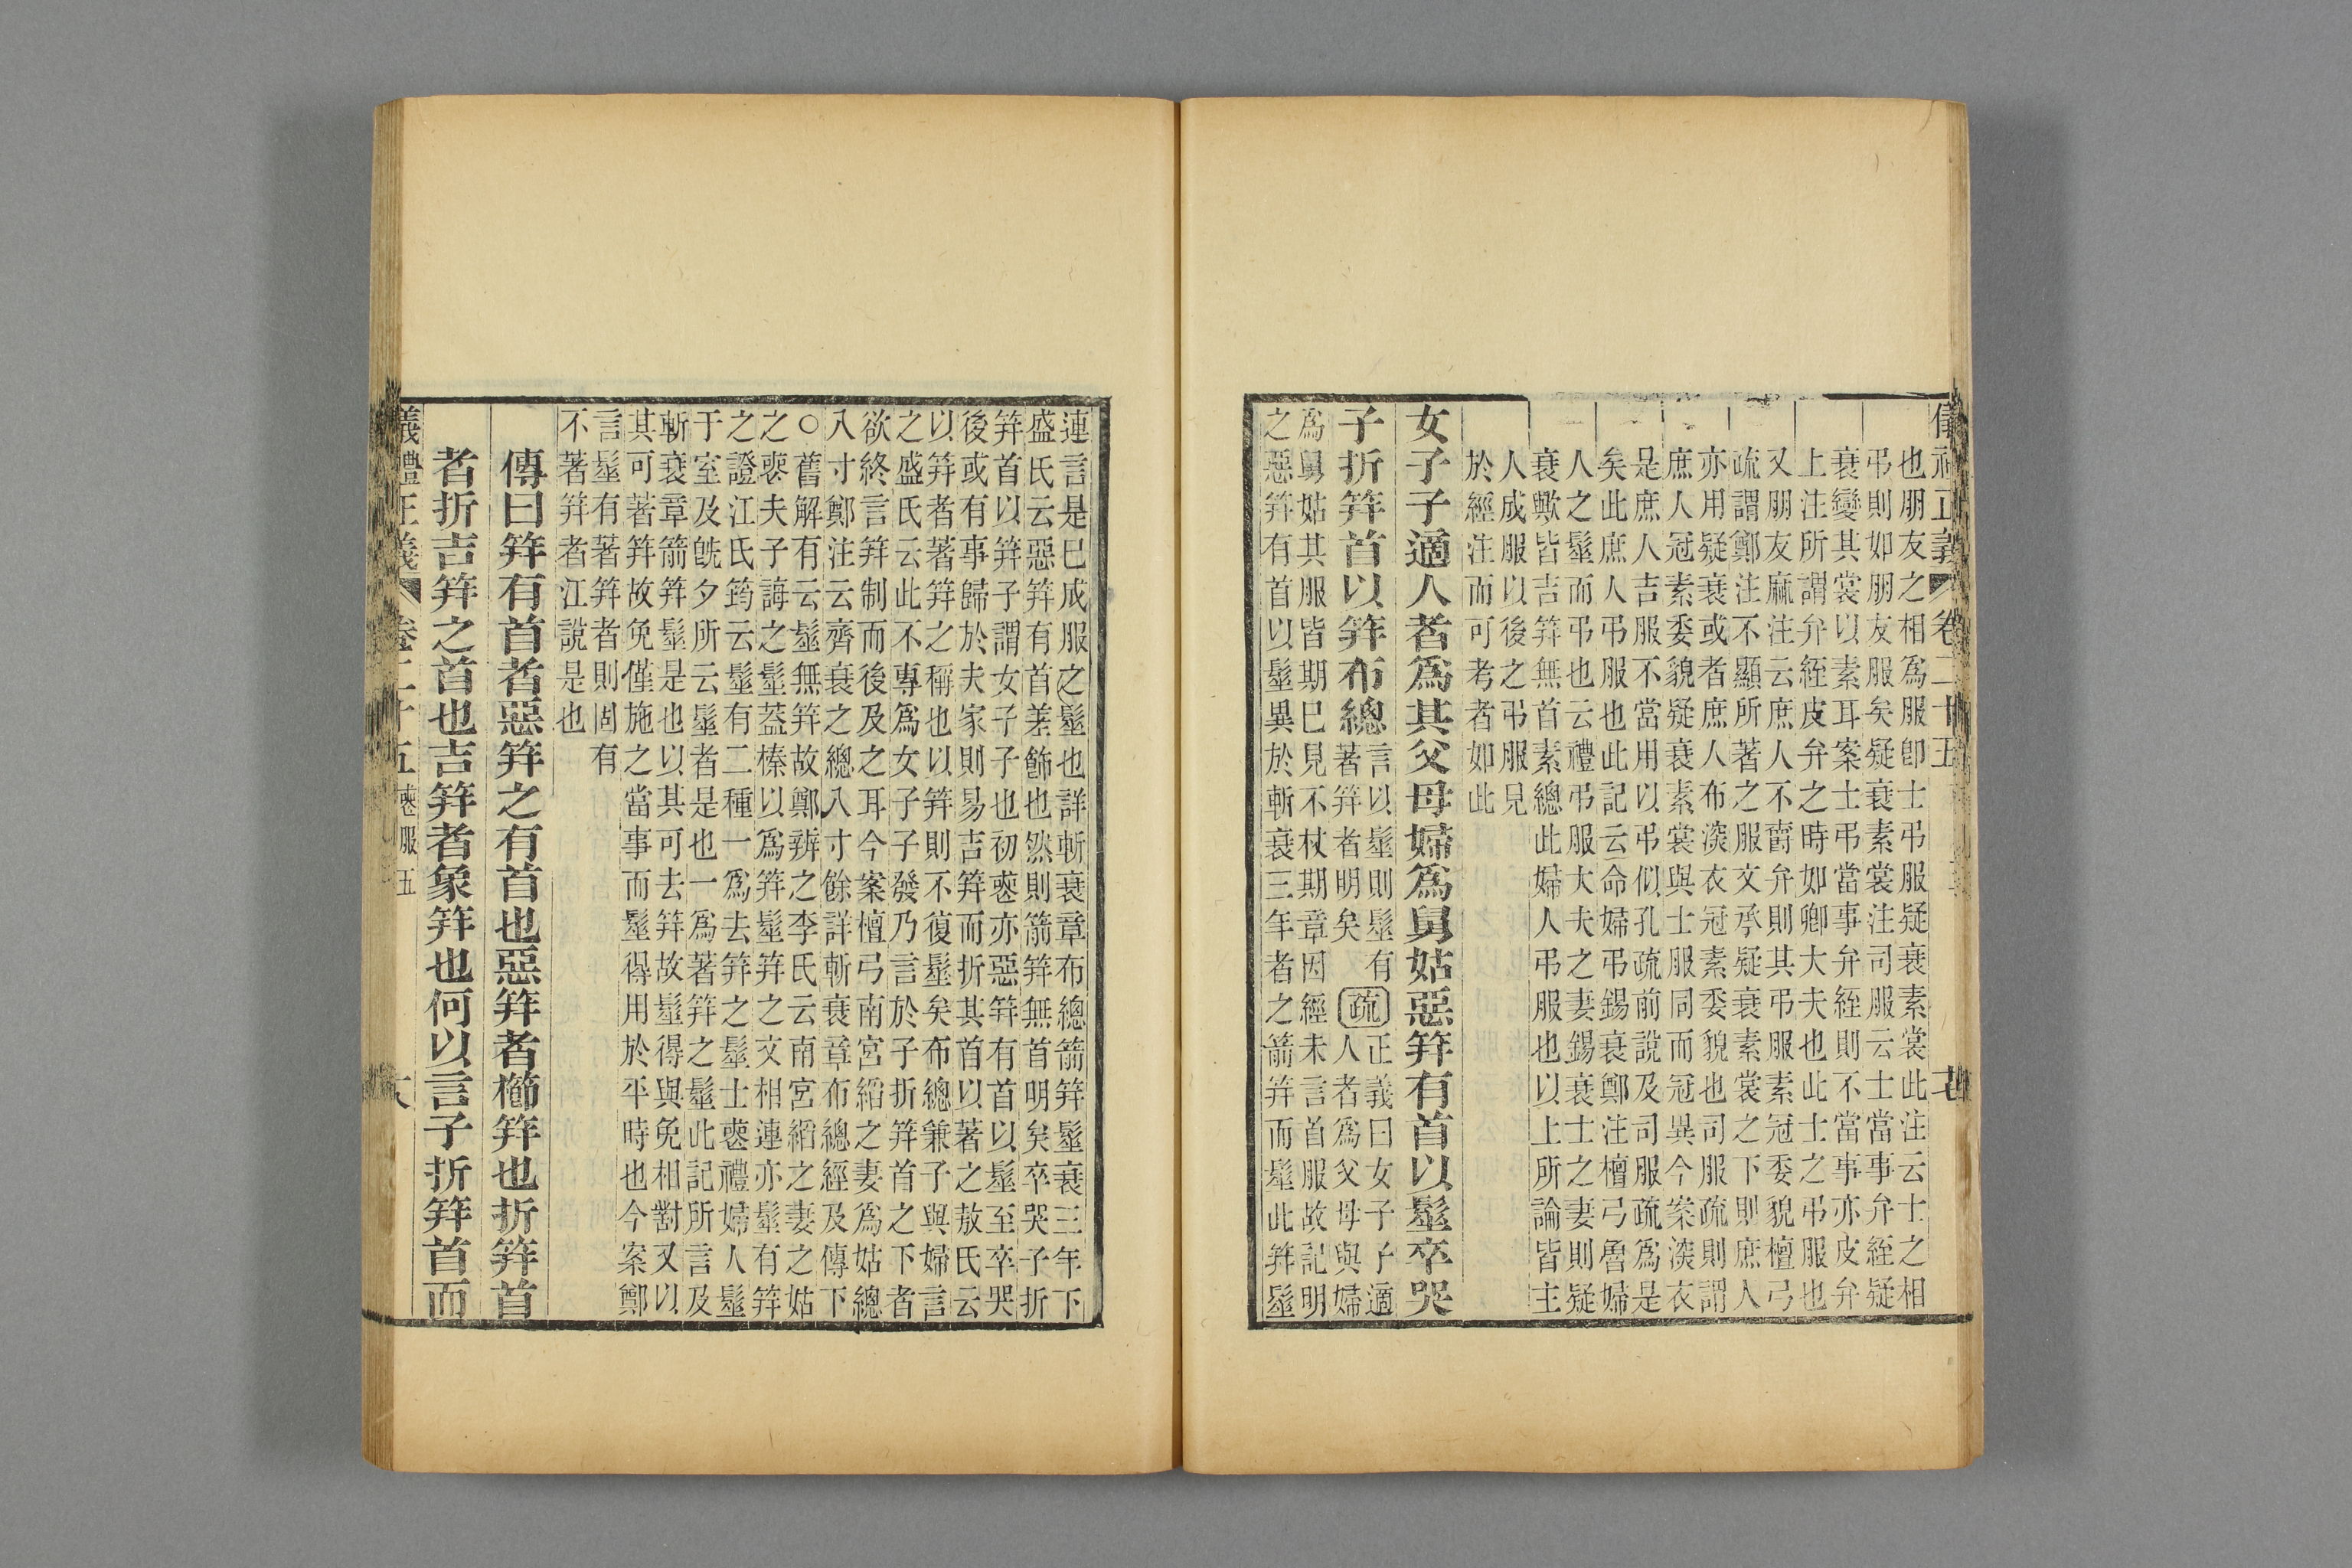 儀禮正義 卷二十五
也朋友之相爲服卽士弔服疑衰素裳此注云士之相
弔則如朋友服矣疑衰素裳注司服云士當事弁絰疑
衰變其裳以素耳案士弔當事弁絰則不當事亦皮弁
上注所謂弁絰皮弁之時如卿大夫也此士之弔服也
又朋友麻注云庶人不爵弁則其弔服素冠委貌檀弓
疏謂鄭注不顯所著之服文承疑衰素裳之下則庶人
亦用疑衰或者庶人布深衣冠素委貌也司服疏則謂
庶人冠素委貌疑衰素裳與士服同而冠異今案深衣
是庶人吉服不當用以弔似孔疏前說及司服疏爲是
矣此庶人弔服也此記云命婦弔錫衰鄭注檀弓魯婦
人之髽而弔也云禮弔服大夫之妻錫衰士之妻則疑
衰歟皆吉笄無首素總此婦人弔服也以上所論皆主
人成服以後之弔服見
於經注而可考者如此
女子子適人者爲其父母婦爲舅姑惡笄有首以髽卒哭
子折笄首以笄布總言以髽則髽有
著笄者明矣疏正義曰女子子適
人者爲父母與婦
爲舅姑其服皆期已見不杖期章因經未言首服故記明
之惡笄有首以髽異於斬衰三年者之箭笄而髽此笄髽
連言是已成服之髽也詳斬衰章布總箭笄髽衰三年下
盛氏云惡笄有首差飾也然則箭笄無首明矣卒哭子折
笄首以笄子謂女子子也初喪亦惡笄有首以髽至卒哭
後或有事歸於夫家則易吉笄而折其首以著之敖氏云
以笄者著笄之稱也以笄則不復髽矣布總兼子與婦言
之盛氏云此不專爲女子子發乃言於子折笄首之下者
欲終言笄制而後及之耳今案檀弓南宮縚之妻爲姑總
八寸鄭注云齊衰之總八寸餘詳斬衰章布總經及傳下
○舊解有云髽無笄故鄭辨之李氏云南宮縚之妻之姑
之喪夫子誨之髽蓋榛以爲笄髽笄之文相連亦髽有笄
之證江氏筠云髽有二種一爲去笄之髽士喪禮婦人髽
于室及旣夕所云髽者是也一爲著笄之髽此記所言及
斬衰章箭笄髽是也以其可去笄故髽得與免相對又以
其可著笄故免僅施之當事而髽得用於平時也今案鄭
言髽有著笄者則固有
不著笄者江說是也
傳曰笄有首者惡笄之有首也惡笄者櫛笄也折笄首
者折吉笄之首也吉笄者象笄也何以言子折笄首而
儀禮正義 卷二十五 喪服五